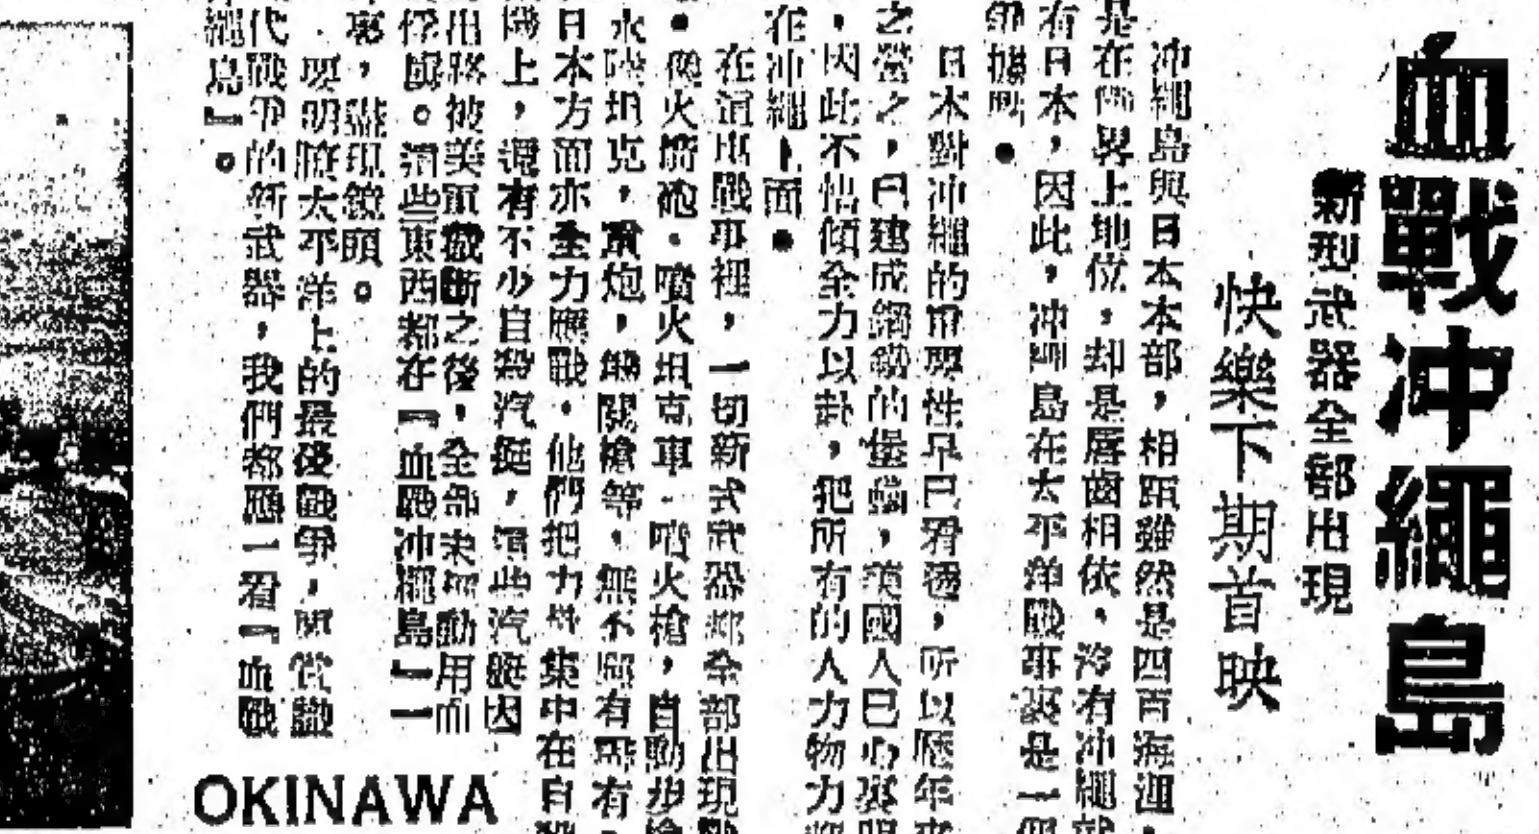 血戰冲繩島
新型武器全部出現
快樂下期首映
冲繩島與日本本部，相距雖然是四百海浬，
是在世界上地位，却是唇齒相依，沒有冲繩就
有日本，因此，冲繩島在太平洋戰事裏是一個
日本對冲繩的重要性早已看透，所以歷年來
之營之，已建成鋼鐵的堡壘，美國人已心裏明
，因此不惜傾全力以赴，把所有的人力物力
在冲繩上面●
在這塲戰事裡，一切新式武器都全部出現戰
火箭砲・噴火坦克車・噴火槍，自動步槍
水陸坦克，重炮，機關槍等・無不應有盡有
日本方面亦全力應戰・他們把力量集中在自殺
機上，還有不少自殺汽艇，這些汽艇因
出將被美軍截斷之後，全部未經動用而
俘虜。這些東西都在『血戰冲繩島』一
裏，盡現鏡頭。
要明瞭太平洋上的最後戰爭，欣賞
代戰爭的新武器，我們都應一看『血戰
繩島』。
OKINAWA